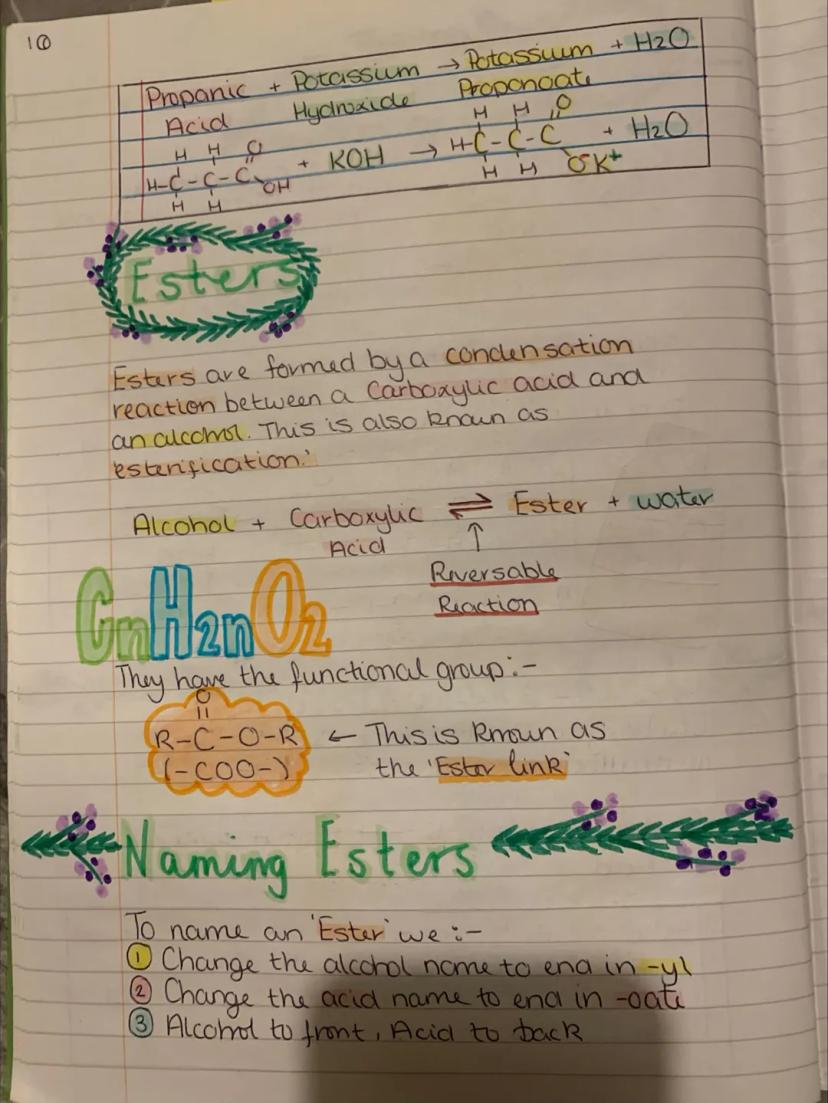 10
Propanic + Potassium → Potassium + H2O
Acid Hydroxide Proponoate
H H O
H-C-C-C OH + KOH → H-C-C-C O-K+ + H2O
H H
H H O
H H
Esters
Esters are formed by a condensation
reaction between a Carboxylic acid and
an alcohol. This is also known as
'esterification.'
Alcohol + Carboxylic ⇌ Ester + water
Acid ↑
Reversable
Reaction
CnH2nO2
They have the functional group:-
O
R-C-O-R ← This is known as
(-COO-) the 'Ester link'
Naming Esters
To name an 'Ester' we :-
① Change the alcohol name to end in -yl
② Change the acid name to end in -oate
③ Alcohol to front, Acid to back